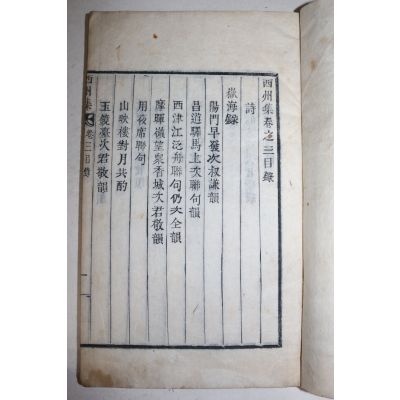 西州集卷之三目錄
詩
嶽海錄
陽門早發次叔謙韻
昌道驛馬上次聯句韻
西津江泛舟聯句仍次全韻
摩暉嶺望衆香城次君敬韻
用夜席聯句
山暎樓對月共酌
玉鏡臺次君敬韻
西州集 卷三目錄 一